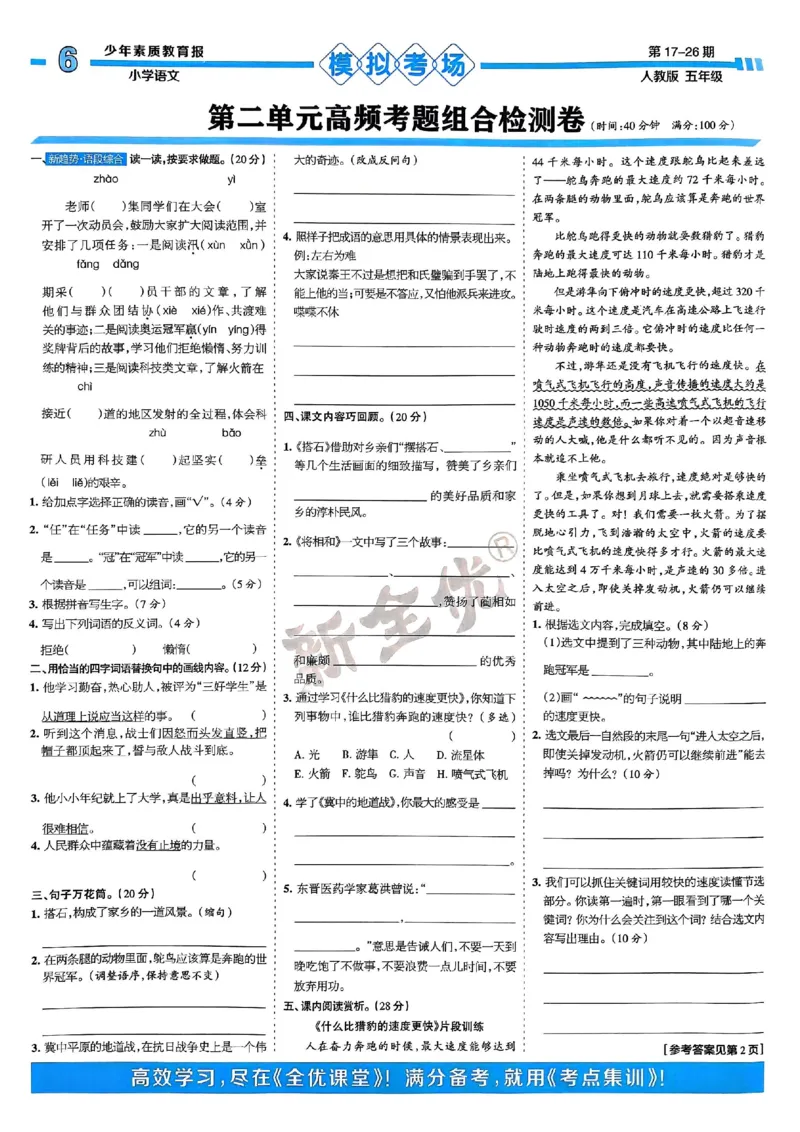 6
少年素质教育报
小学语文
模拟考场
第17-26期
人教版 五年级
第二单元高频考题组合检测卷(时间:40分钟 满分:100分)
一、新趋势·语段综合 读一读,按要求做题。(20分)
zhào yì
老师( )集同学们在大会( )室
开了一次动员会,鼓励大家扩大阅读范围,并
安排了几项任务:一是阅读汛(xùn xǜn)
fāng dǎng
期采( )( )员干部的文章,了解
他们与群众团结协(xiè xié)作、共渡难
关的事迹;二是阅读奥运冠军赢(yín yíng)得
奖牌背后的故事,学习他们拒绝懒惰、努力训
练的精神;三是阅读科技类文章,了解火箭在
chì
接近( )道的地区发射的全过程,体会科
zhù bǎo
研人员用科技建( )起坚实( )垒
(lěi liě)的艰辛。
1.给加点字选择正确的读音,画“√”。(4分)
2.“任”在“任务”中读______,它的另一个读音
是______。“冠”在“冠军”中读______,它的另一
个读音是______,可以组词:______。(5分)
3.根据拼音写生字。(7分)
4.写出下列词语的反义词。(4分)
拒绝( ) 懒惰( )
二、用恰当的四字词语替换句中的画线内容。(12分)
1.他学习勤奋,热心助人,被评为“三好学生”是
从道理上说应当这样的事。 ( )
2.听到这个消息,战士们因怒而头发直竖,把
帽子都顶起来了,誓与敌人战斗到底。
( )
3.他小小年纪就上了大学,真是出乎意料,让人
很难相信。 ( )
4.人民群众中蕴藏着没有止境的力量。
( )
三、句子万花筒。(20分)
1.搭石,构成了家乡的一道风景。(缩句)
2.在两条腿的动物里面,鸵鸟应该算是奔跑的世
界冠军。(调整语序,保持意思不变)
3.冀中平原的地道战,在抗日战争史上是一个伟
大的奇迹。(改成反问句)
4.照样子把成语的意思用具体的情景表现出来。
例:左右为难
大家说秦王不过是想把和氏璧骗到手罢了,不
能上他的当;可要是不答应,又怕他派兵来进攻。
喋喋不休
四、课文内容巧回顾。(20分)
1.《搭石》借助对乡亲们“摆搭石、____________”
等几个生活画面的细致描写,赞美了乡亲们
____________的美好品质和家
乡的淳朴民风。
2.《将相和》一文中写了三个故事:____________
____________、____________、
____________,赞扬了蔺相如
和廉颇____________的优秀
品质。
3.通过学习《什么比猎豹的速度更快》,你知道下
列事物中,谁比猎豹奔跑的速度快?(多选)
( )
A.光 B.游隼 C.人 D.流星体
E.火箭 F.鸵鸟 G.声音 H.喷气式飞机
4.学了《冀中的地道战》,你最大的感受是______
____________。
5.东晋医药学家葛洪曾说:“____________
____________,____________
____________。”意思是告诫人们,不要一天到
晚吃饱了不做事,不要浪费一点儿时间,不要
放弃用功。
五、课内阅读赏析。(28分)
《什么比猎豹的速度更快》片段训练
人在奋力奔跑的时候,最大速度能够达到
44千米每小时。这个速度跟鸵鸟比起来差远
了——鸵鸟奔跑的最大速度约72千米每小时。
在两条腿的动物里面,鸵鸟应该算是奔跑的世界
冠军。
比鸵鸟跑得更快的动物就要数猎豹了。猎豹
奔跑的最大速度可达110千米每小时。猎豹才是
陆地上跑得最快的动物。
但是游隼向下俯冲时的速度更快,超过320千
米每小时。这个速度是汽车在高速公路上飞速行
驶时速度的两到三倍。它俯冲时的速度比任何一
种动物奔跑时的速度都要快。
不过,游隼还是没有飞机飞行的速度快。在
喷气式飞机飞行的高度,声音传播的速度大约是
1050千米每小时,而一些高速喷气式飞机的飞行
速度是声速的数倍。如果你对着一个以超音速移
动的人大喊,他是什么都听不见的。因为声音根
本就追不上他。
乘坐喷气式飞机去旅行,速度绝对是够快的
了。但是,如果你想到月球上去,就需要搭乘速度
更快的工具了。对!我们需要一枚火箭。为了摆
脱地心引力,飞到浩瀚的太空中,火箭的速度要
比喷气式飞机的速度快得多才行。火箭的最大速
度能达到4万千米每小时,是声速的30多倍。进
入太空之后,即使关掉发动机,火箭仍可以继续
前进。
1.根据选文内容,完成填空。(8分)
(1)选文中提到了三种动物,其中陆地上的奔
跑冠军是____________。
(2)画“﹏﹏﹏”的句子说明____________
的速度更快。
2.选文最后一自然段的末尾一句“进入太空之后,
即使关掉发动机,火箭仍可以继续前进”能去
掉吗?为什么?(10分)
3.我们可以抓住关键词用较快的速度读懂节选
部分。你读第一遍时,第一眼看到了哪一个关
键词?你为什么会关注到这个词?结合选文内
容写出理由。(10分)
[参考答案见第2页]
新全优®
高效学习,尽在《全优课堂》!满分备考,就用《考点集训》!